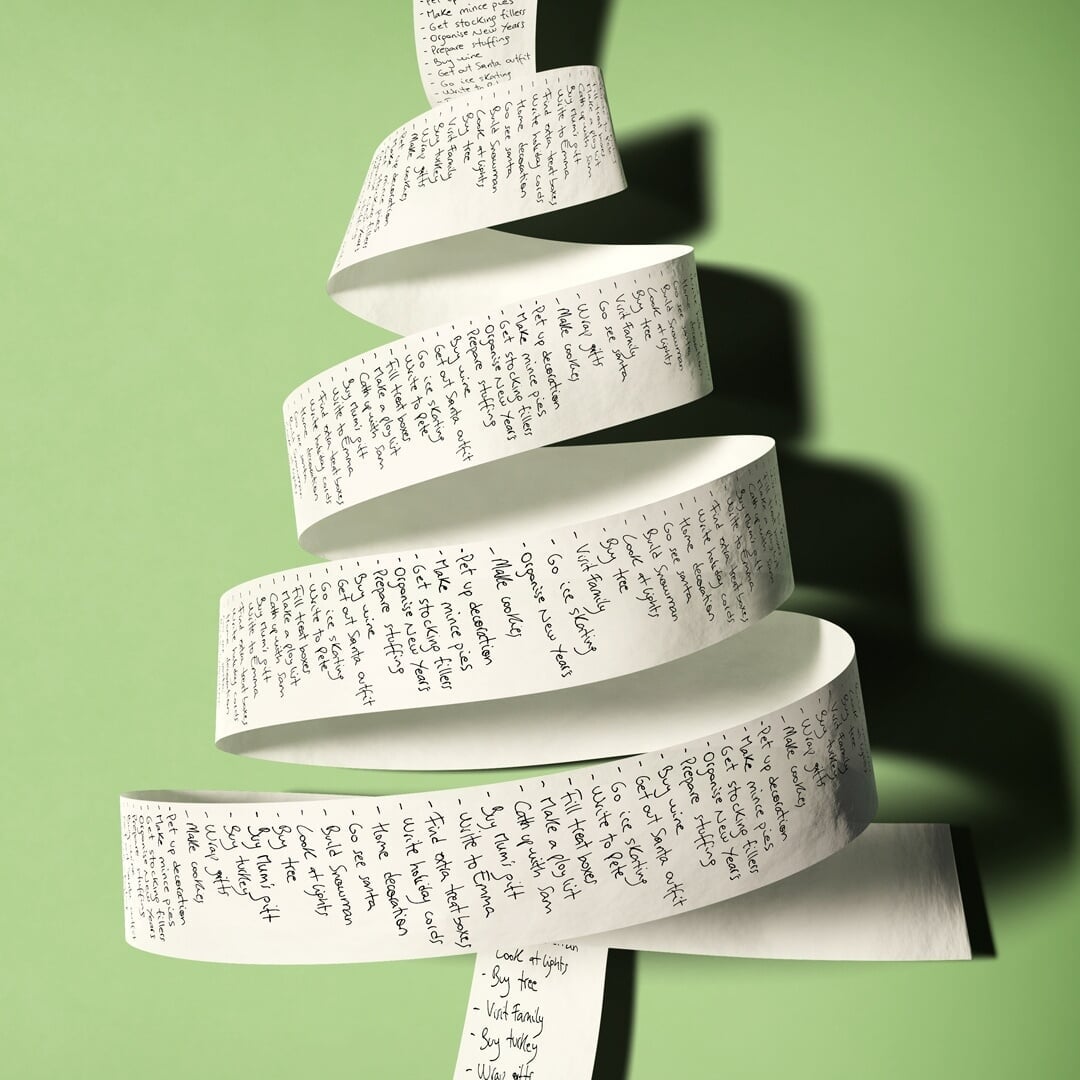 - Make mince pies
- Get stocking fillers
- Organise New Years
- Prepare stuffing
- Buy wine
- Get out Santa outfit
- Go ice skating
- Write to
- Make a play list
- Cath up with Sam
- Buy Mum's gift
- Write to Emma
- Find extra treat boxes
- Write holiday cards
- Home decoration
- Go see santa
- Build Snowman
- Cook at lights
- Buy tree
- Visit Family
- Buy turkey
- Wrap gifts
- Make cookies
- Pet up decoration
- Make mince pies
- Go see
- Build Snowman
- Cook at lights
- Buy tree
- Visit Family
- Go see santa
- Wrap gifts
- Make cookies
- Pet up decoration
- Make mince pies
- Get stocking fillers
- Organise New Years
- Prepare stuffing
- Buy wine
- Get out Santa outfit
- Go ice skating
- Write to Pete
- Fill treat boxes
- Make a play list
- Cath up with Sam
- Buy Mum's gift
- Write to Emma
- Find extra treat boxes
- Write holiday cards
- Home decoration
- Go see santa
- Make a play list
- Cath up with Sam
- Buy Mum's gift
- Write to Emma
- Find extra treat boxes
- Write holiday cards
- Home decoration
- Go see santa
- Build Snowman
- Cook at lights
- Buy tree
- Visit Family
- Go ice skating
- Organise New Years
- Make cookies
- Pet up decoration
- Make mince pies
- Get stocking fillers
- Organise New Years
- Prepare stuffing
- Buy wine
- Get out Santa outfit
- Go ice skating
- Write to Pete
- Fill treat boxes
- Make a play list
- Cath up with Sam
- Buy Mum's gift
- Write to Emma
- Find extra treat boxes
- Write holiday cards
- Home decoration
- Cook at
- Buy tree
- Visit Family
- Buy turkey
- Wrap gifts
- Make cookies
- Pet up decoration
- Make mince pies
- Get stocking fillers
- Organise New Years
- Prepare stuffing
- Buy wine
- Get out Santa outfit
- Go ice skating
- Write to Pete
- Fill treat boxes
- Make a play list
- Cath up with Sam
- Buy Mum's gift
- Write to Emma
- Find extra treat boxes
- Write holiday cards
- Home decoration
- Go see santa
- Build Snowman
- Cook at lights
- Buy tree
- Buy Mum's gift
- Buy turkey
- Wrap gifts
- Make cookies
- Pet up decoration
- Make mince pies
- Get stocking fillers
- Organise New Years
Cook at lights
- Buy tree
- Visit Family
- Buy turkey
- Wrap gifts